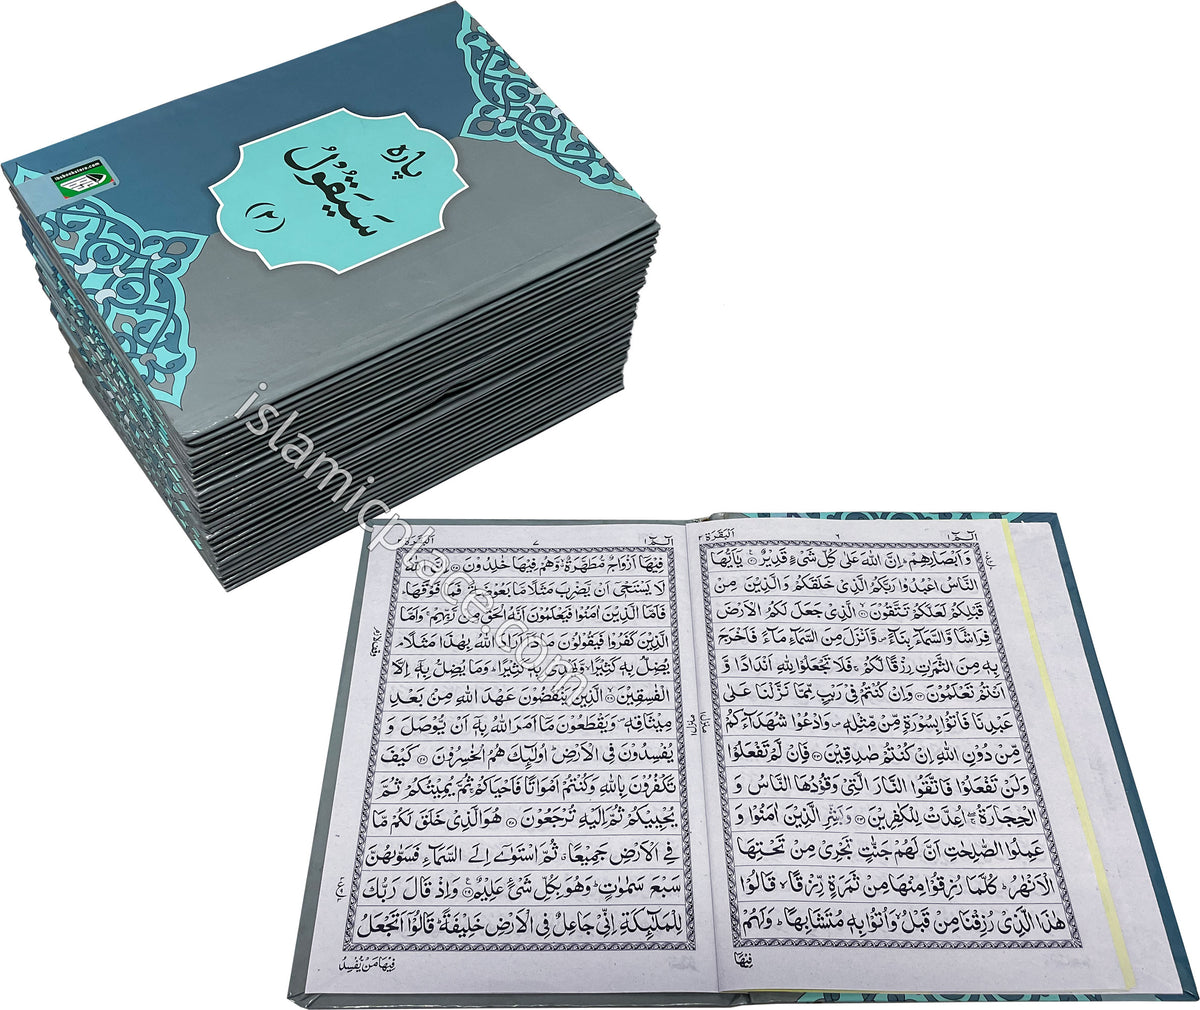 پاره
سَيَقُوْلُ
(٢)
ibsbookstore.com
islamicplace.com
الٓمّٓ ١
٦
اَلْبَقَرَة ٢
وَ اَبْصَارِهِمْ ؕ اِنَّ اللّٰهَ عَلٰى كُلِّ شَیْءٍ قَدِیْرٌ ۟۠ یٰۤاَیُّهَا
النَّاسُ اعْبُدُوْا رَبَّكُمُ الَّذِیْ خَلَقَكُمْ وَ الَّذِیْنَ مِنْ
قَبْلِكُمْ لَعَلَّكُمْ تَتَّقُوْنَ ۟ۙ الَّذِیْ جَعَلَ لَكُمُ الْاَرْضَ
فِرَاشًا وَّ السَّمَآءَ بِنَآءً ۪ وَّ اَنْزَلَ مِنَ السَّمَآءِ مَآءً فَاَخْرَجَ
بِهٖ مِنَ الثَّمَرٰتِ رِزْقًا لَّكُمْ ۚ فَلَا تَجْعَلُوْا لِلّٰهِ اَنْدَادًا وَّ
اَنْتُمْ تَعْلَمُوْنَ ۟ وَ اِنْ كُنْتُمْ فِیْ رَیْبٍ مِّمَّا نَزَّلْنَا عَلٰى
عَبْدِنَا فَاْتُوْا بِسُوْرَةٍ مِّنْ مِّثْلِهٖ ۪ وَ ادْعُوْا شُهَدَآءَكُمْ
مِّنْ دُوْنِ اللّٰهِ اِنْ كُنْتُمْ صٰدِقِیْنَ ۟ فَاِنْ لَّمْ تَفْعَلُوْا
وَ لَنْ تَفْعَلُوْا فَاتَّقُوا النَّارَ الَّتِیْ وَ قُوْدُهَا النَّاسُ وَ
الْحِجَارَةُ ۖۚ اُعِدَّتْ لِلْكٰفِرِیْنَ ۟ وَ بَشِّرِ الَّذِیْنَ اٰمَنُوْا وَ
عَمِلُوا الصّٰلِحٰتِ اَنَّ لَهُمْ جَنّٰتٍ تَجْرِیْ مِنْ تَحْتِهَا
الْاَنْهٰرُ ؕ كُلَّمَا رُزِقُوْا مِنْهَا مِنْ ثَمَرَةٍ رِّزْقًا ۙ قَالُوْا
هٰذَا الَّذِیْ رُزِقْنَا مِنْ قَبْلُ ۙ وَ اُتُوْا بِهٖ مُتَشَابِهًا ؕ وَ لَهُمْ
فِیْهَا
الٓمّٓ ١
٧
اَلْبَقَرَة
فِیْهَاۤ اَزْوَاجٌ مُّطَهَّرَةٌ ۙ وَّ هُمْ فِیْهَا خٰلِدُوْنَ ۟ اِنَّ اللّٰهَ
لَا یَسْتَحْیٖۤ اَنْ یَّضْرِبَ مَثَلًا مَّا بَعُوْضَةً فَمَا فَوْقَهَا ؕ
فَاَمَّا الَّذِیْنَ اٰمَنُوْا فَیَعْلَمُوْنَ اَنَّهُ الْحَقُّ مِنْ رَّبِّهِمْ ۚ وَ اَمَّا
الَّذِیْنَ كَفَرُوْا فَیَقُوْلُوْنَ مَاذَاۤ اَرَادَ اللّٰهُ بِهٰذَا مَثَلًا ۘ
یُضِلُّ بِهٖ كَثِیْرًا ۙ وَّ یَهْدِیْ بِهٖ كَثِیْرًا ؕ وَ مَا یُضِلُّ بِهٖۤ اِلَّا
الْفٰسِقِیْنَ ۟ۙ الَّذِیْنَ یَنْقُضُوْنَ عَهْدَ اللّٰهِ مِنْ بَعْدِ
مِیْثَاقِهٖ ۪ وَ یَقْطَعُوْنَ مَاۤ اَمَرَ اللّٰهُ بِهٖۤ اَنْ یُّوْصَلَ وَ
یُفْسِدُوْنَ فِی الْاَرْضِ ؕ اُولٰٓىِٕكَ هُمُ الْخٰسِرُوْنَ ۟ كَیْفَ
تَكْفُرُوْنَ بِاللّٰهِ وَ كُنْتُمْ اَمْوَاتًا فَاَحْیَاكُمْ ۚ ثُمَّ یُمِیْتُكُمْ ثُمَّ
یُحْیِیْكُمْ ثُمَّ اِلَیْهِ تُرْجَعُوْنَ ۟ هُوَ الَّذِیْ خَلَقَ لَكُمْ مَّا
فِی الْاَرْضِ جَمِیْعًا ۗ ثُمَّ اسْتَوٰۤى اِلَى السَّمَآءِ فَسَوّٰىهُنَّ
سَبْعَ سَمٰوٰتٍ ؕ وَ هُوَ بِكُلِّ شَیْءٍ عَلِیْمٌ ۟۠ وَ اِذْ قَالَ رَبُّكَ
لِلْمَلٰٓىِٕكَةِ اِنِّیْ جَاعِلٌ فِی الْاَرْضِ خَلِیْفَةً ؕ قَالُوْۤا اَتَجْعَلُ
فِیْهَا مَنْ یُّفْسِدُ